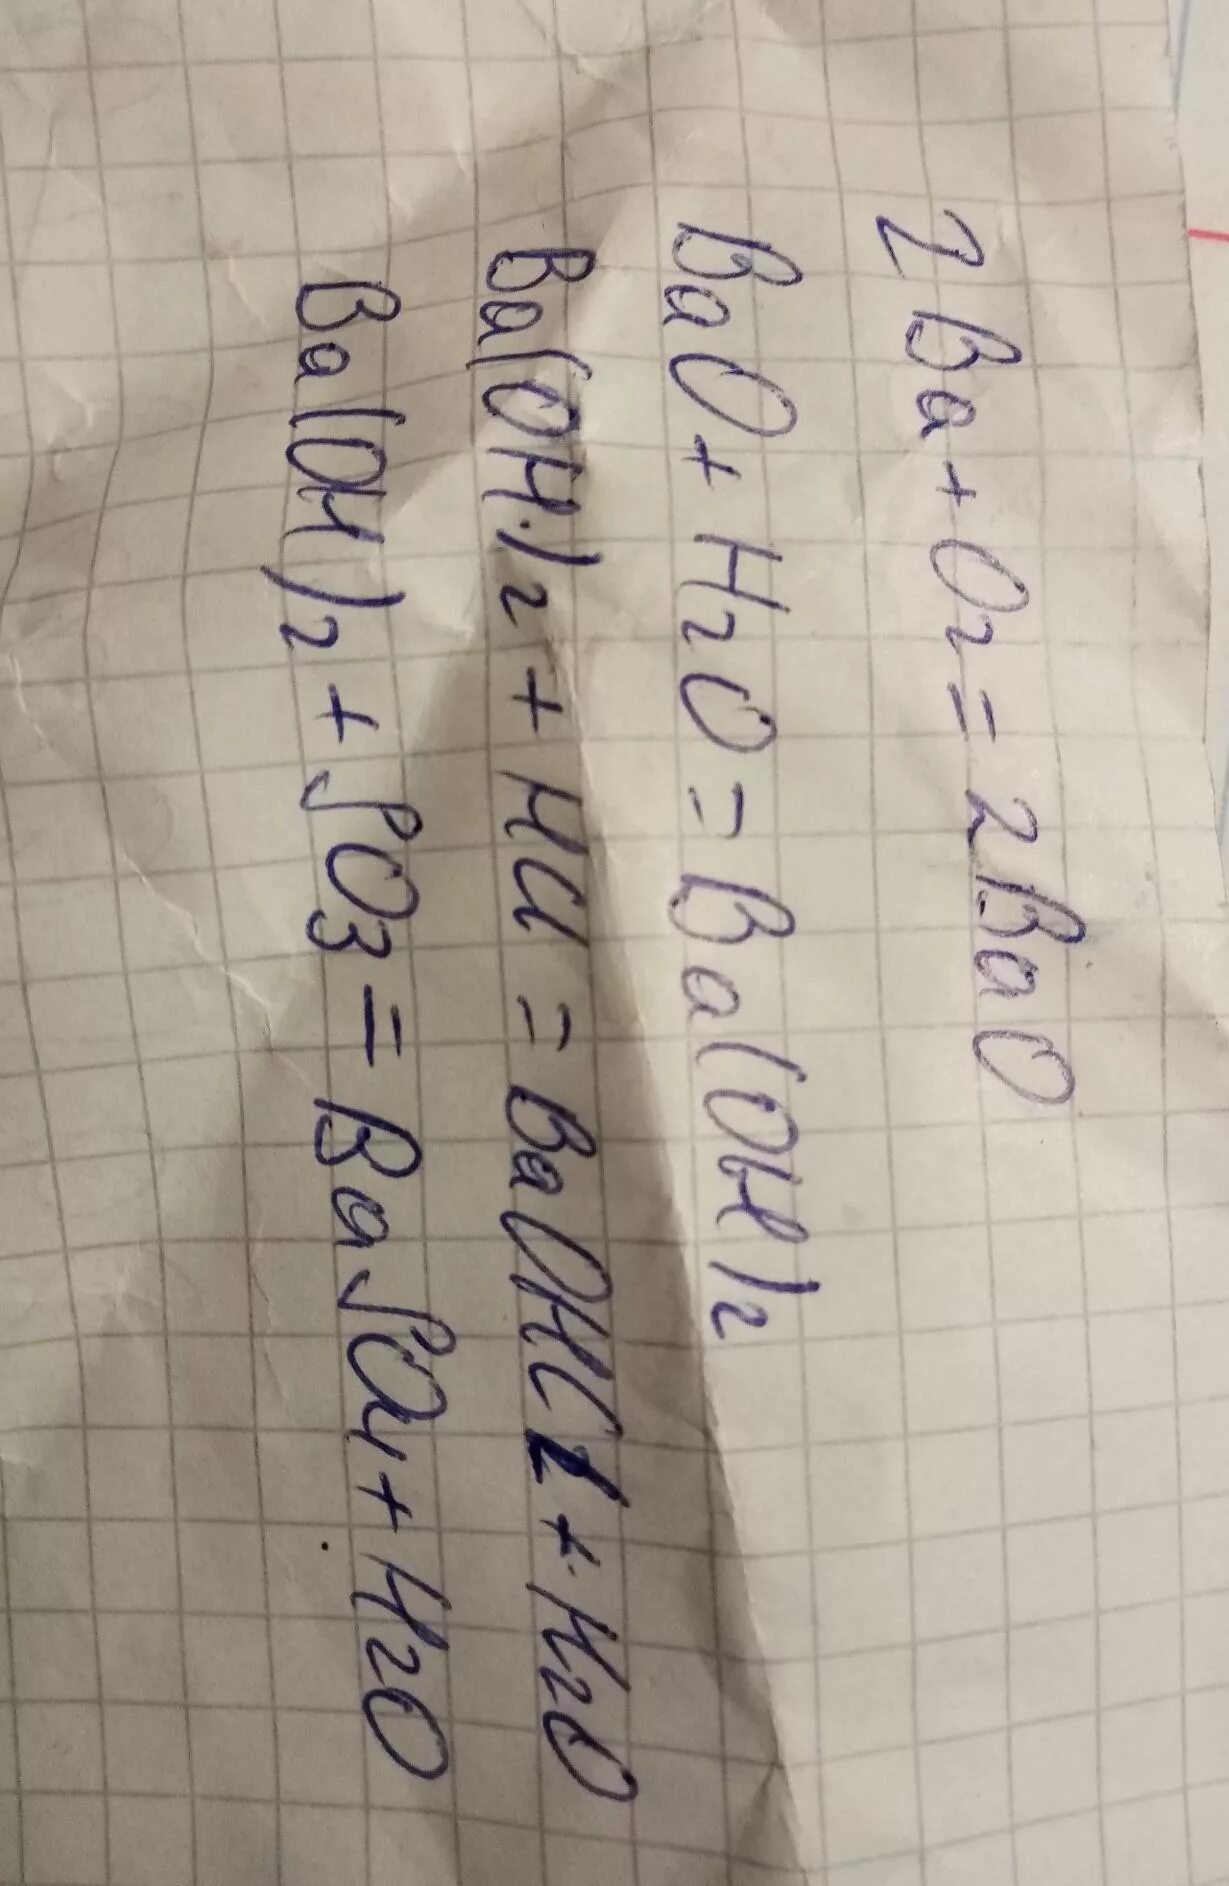 2Ba+O2=2BaO
BaO+H2O=Ba(OH)2
Ba(OH)2+HCl=BaOHCl+H2O
Ba(OH)2+SO3=BaSO4+H2O